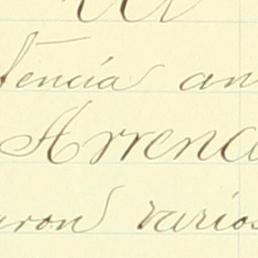 tencia an
Arrenda
aron varios